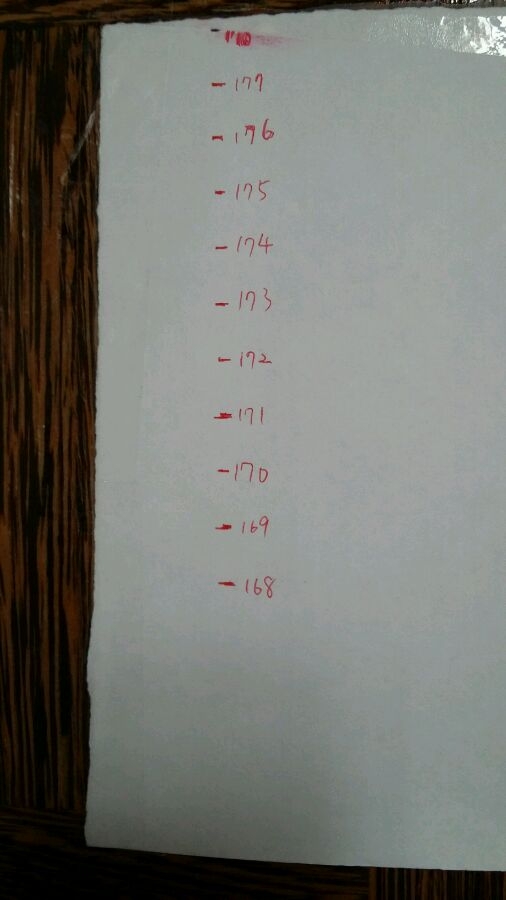 - 177
- 176
- 175
- 174
- 173
- 172
- 171
- 170
- 169
- 168